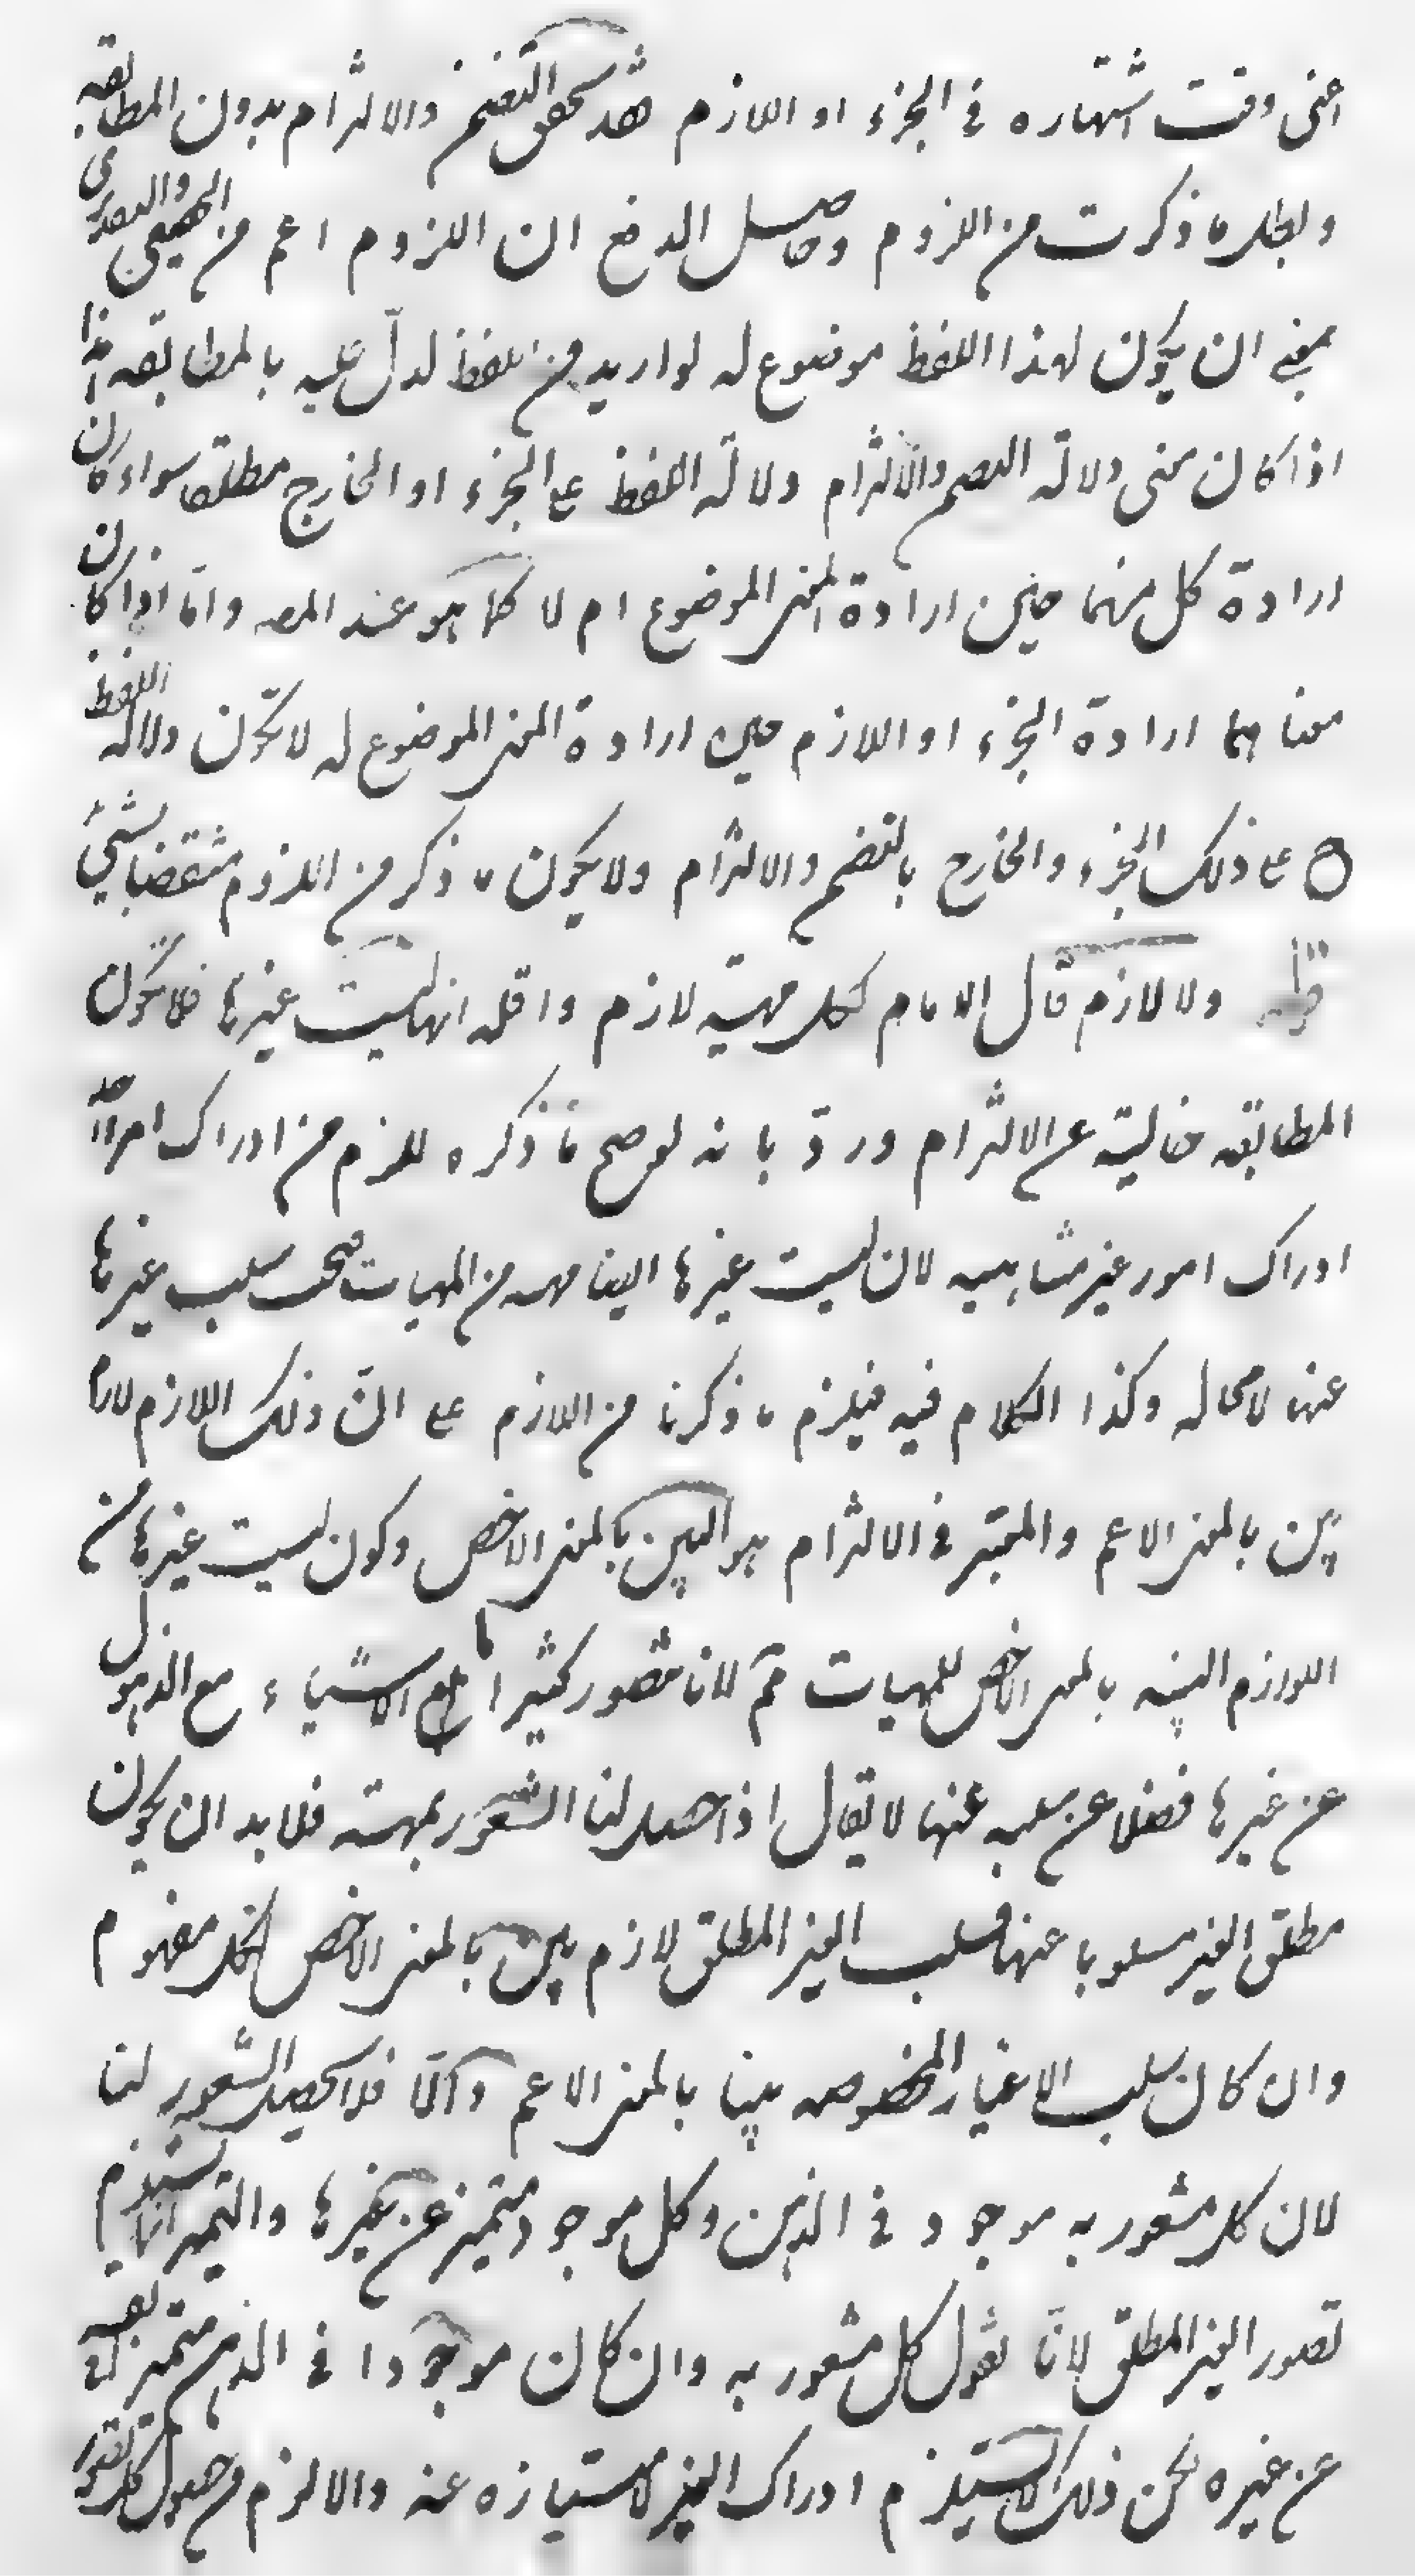 اعنى وقت اشتهاره فى الجزء او اللازم فقد تحقق التضمن والالتزام بدون المطابقه
وبطل ما ذكرت من اللزوم وحاصل الدفع ان اللزوم اعم من الحقيقى والتقديرى
بمعنى ان يكون لهذا اللفظ موضوع له لو اريد من اللفظ لدلّ عليه بالمطابقه هذا
اذا كان معنى دلالة التضمن والالتزام دلالة اللفظ على الجزء او الخارج مطلقا سواء كان
ارادة كل منهما حين ارادة المعنى الموضوع ام لا كما هو عند المصـ وامّا اذا كان
معناهما ارادة الجزء او اللازم حين ارادة المعنى الموضوع له لا تكون دلالة اللفظ
على ذلك الجزء والخارج بالتضمن والالتزام ولا يكون ما ذكر من اللزوم منتقضا بشئ
قوله ولا لازم قال الامام لكل مهية لازم واقله انها ليست غيرها فلا تكون
المطابقه خالية عن الالتزام وردّ بانه لو صح ما ذكره للزم من ادراك امر واحد
ادراك امور غير متناهيه لان ليست غيرها ايضا مهيه من المهيات صحت سلب غيرها
عنها لا محاله وكذا الكلام فيه فيلزم ما ذكرنا من اللازم على انّ ذلك اللازم لازم
بين بالمعنى الاعم والمعتبر فى الالتزام هو البين بالمعنى الاخص وكون ليست غيرها من
اللوازم البينه بالمعنى الاخص للمهيات مم لانا نتصور كثيرا ما الاشياء مع الذهول
عن غيرها فضلا عن سلبه عنها لا يقال اذا حصل لنا الشعور بمهية فلا بد ان يكون
مطلق الغير مسلوبا عنها فسلب الغير المطلق لازم بين بالمعنى الاخص لكل مفهوم
وان كان سلب الاغيار المخصوصه بينا بالمعنى الاعم والّا فلا يحصل الشعور لنا
لان كل مشعور به موجود فى الذهن وكل موجود متميز عن غيرها والتميز انما يستلزم
تصور الغير المطلق لانّا نقول كل مشعور به وان كان موجودا فى الذهن متميز
عن غيره لكن ذلك لا يستلزم ادراك الغير لامتيازه عنه والا لزم من حصول كل تصور